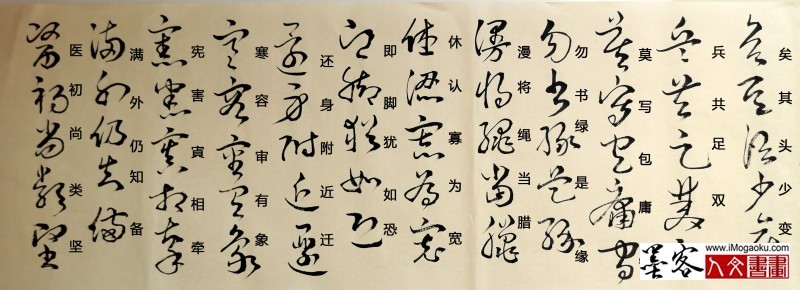 矣其头少变
兵共足双
莫写包庸
勿书绿是缘
漫将绳当腊
休认寡为宽
即脚犹如恐
还身附近迁
寒容审有象
宪害寅相牵
满外仍知备
医初尚类坚
墨客
www.iMogaoku.com
人文書畫